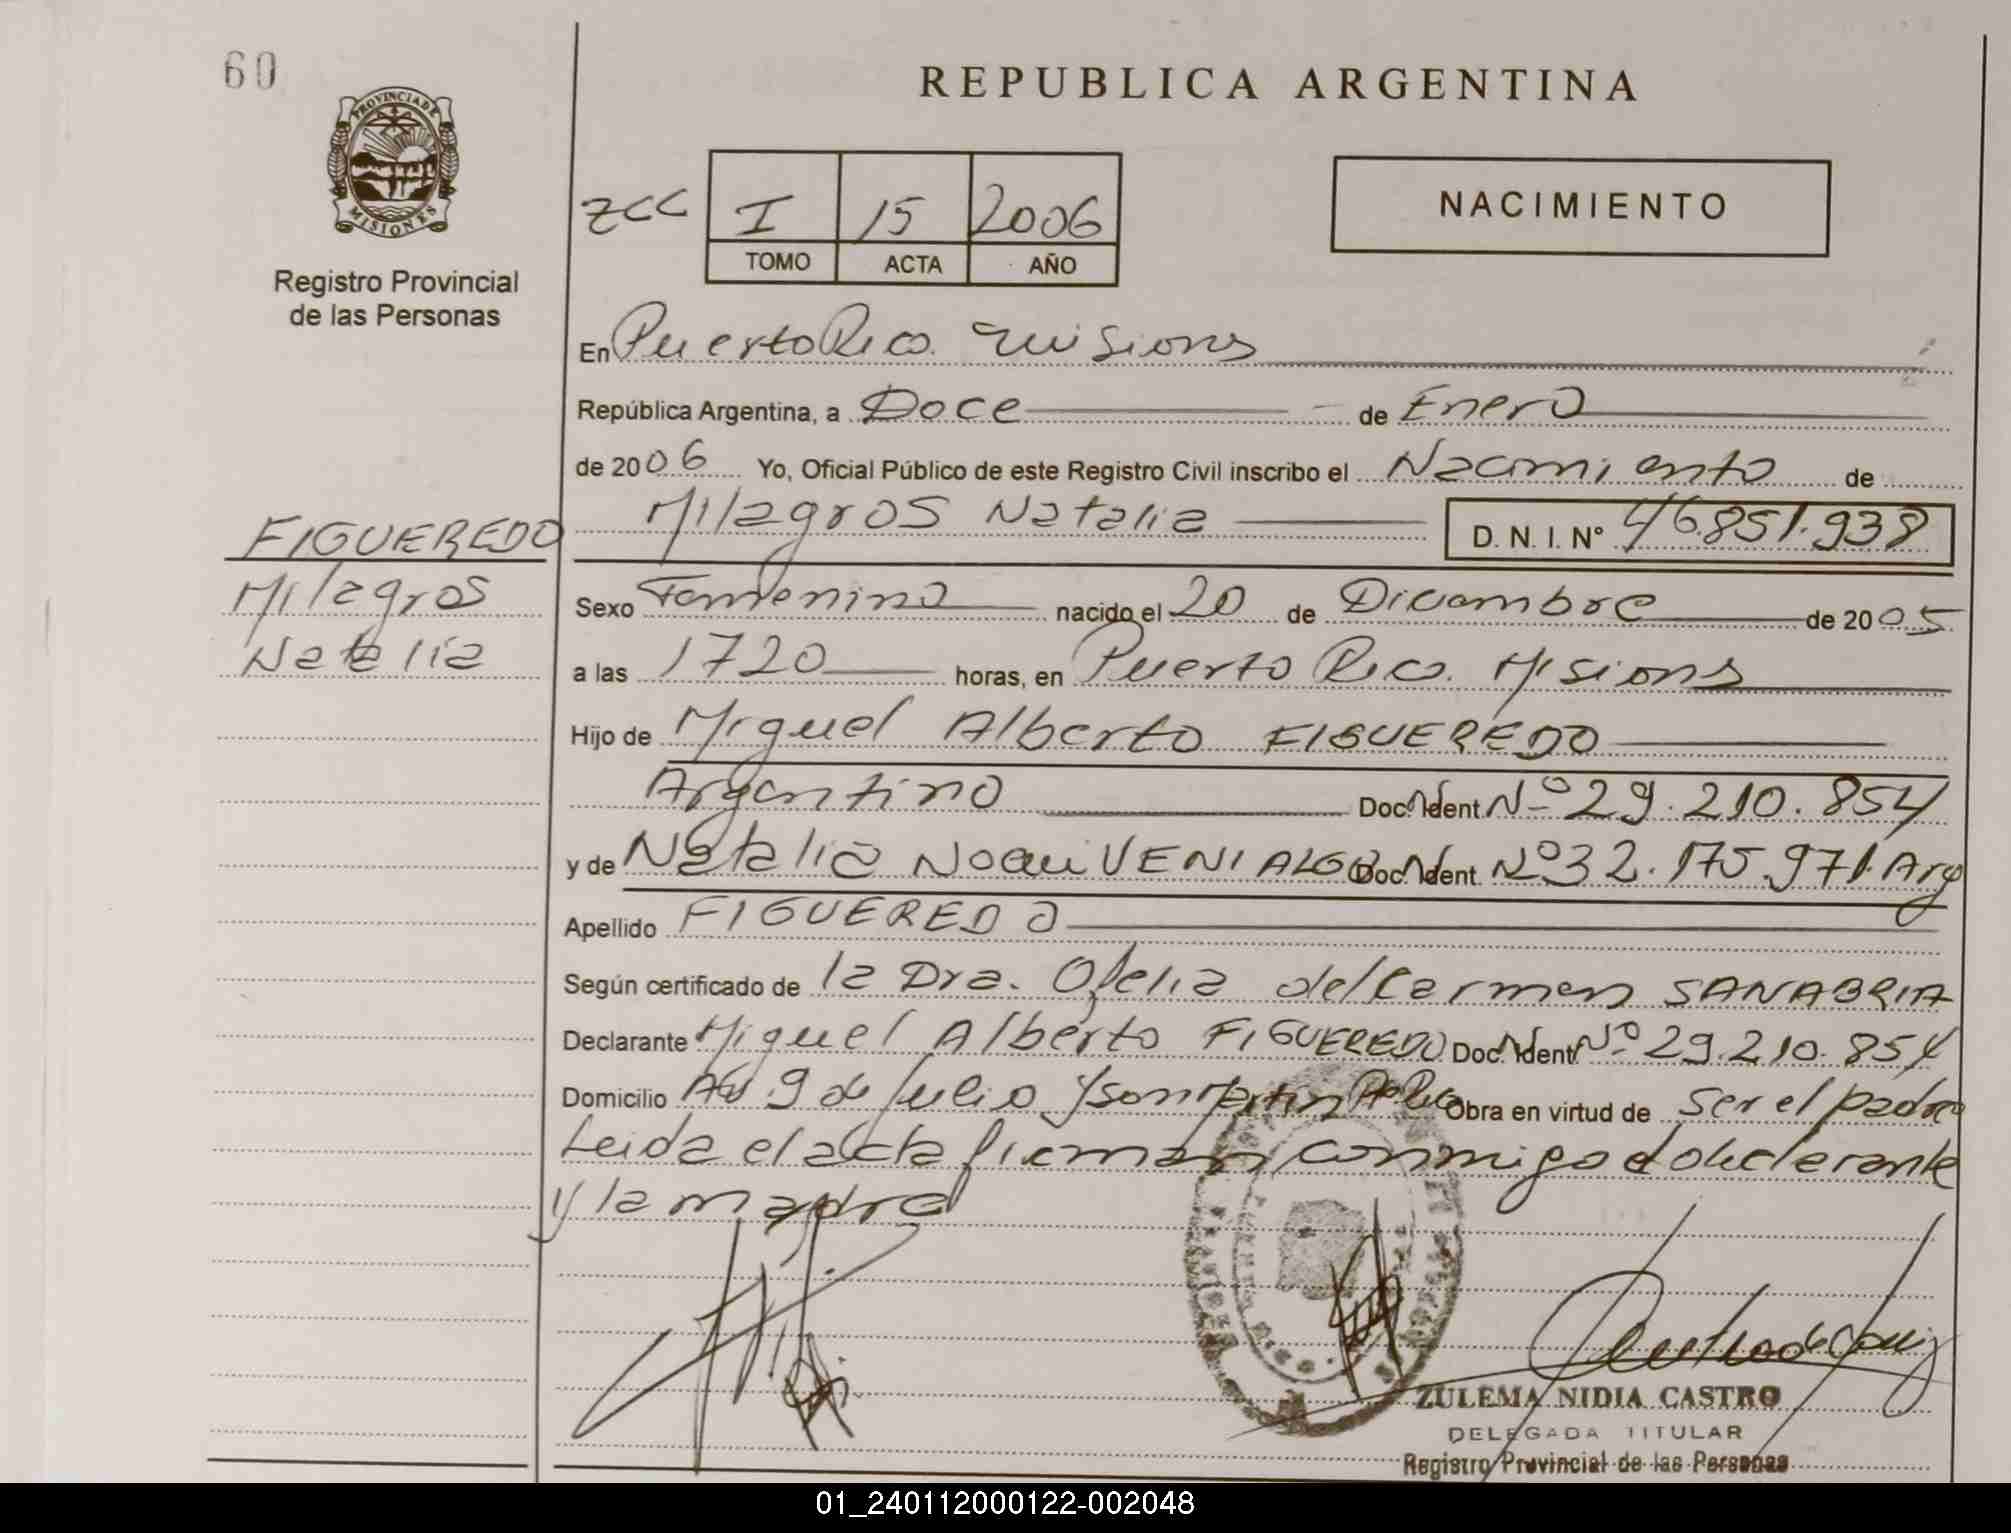 60
PROVINCIA DE
MISIONES
Registro Provincial
de las Personas
REPUBLICA ARGENTINA
zcc I 15 2006
TOMO ACTA AÑO
NACIMIENTO
En Puerto Rico. Misiones
República Argentina, a Doce de Enero
de 2006 Yo, Oficial Público de este Registro Civil inscribo el Nacimiento de
Milagros Natalia D. N. I. Nº 46.851.938
FIGUEREDO
Milagros
Natalia
Sexo Femenino nacido el 20 de Diciembre de 2005
a las 1720 horas, en Puerto Rico. Misiones
Hijo de Miguel Alberto FIGUEREDO
Argentino Doc. Ident. Nº 29.210.854
y de Natalia Noemi VENIALGO Doc. Ident. Nº 32.175.971. Arg
Apellido FIGUEREDO
Según certificado de la Dra. Ofelia del Carmen SANABRIA
Declarante Miguel Alberto FIGUEREDO Doc. Ident. Nº 29.210.854
Domicilio Av 9 de Julio y San Martin Pto Rico Obra en virtud de ser el padre
Leida el acta firman conmigo el declarante
y la madre
ZULEMA NIDIA CASTRO
DELEGADA TITULAR
Registro Provincial de las Personas
01_240112000122-002048